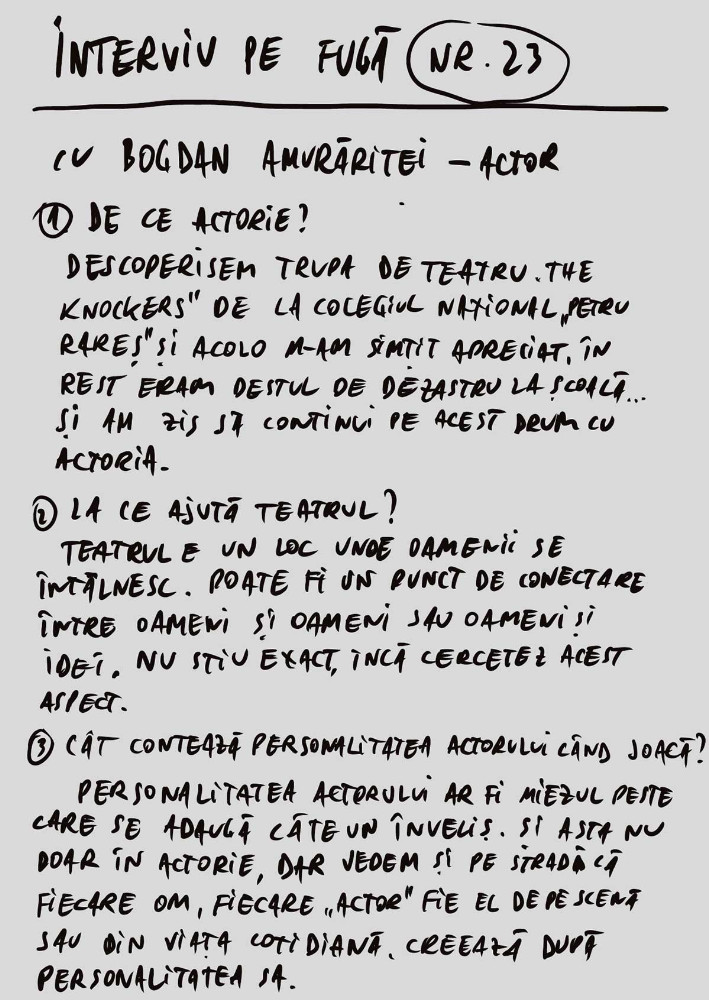 ÎNTERVIU PE FUGĂ NR. 23
CU BOGDAN AMURĂRIȚEI – ACTOR
① DE CE ACTORIE?
DESCOPERISEM TRUPA DE TEATRU „THE
KNOCKERS" DE LA COLEGIUL NAȚIONAL „PETRU
RAREȘ" ȘI ACOLO M-AM SIMȚIT APRECIAT, ÎN
REST ERAM DESTUL DE DEZASTRU LA ȘCOALĂ...
ȘI AM ZIS SĂ CONTINUI PE ACEST DRUM CU
ACTORIA.
② LA CE AJUTĂ TEATRUL?
TEATRUL E UN LOC UNDE OAMENII SE
ÎNTÂLNESC. POATE FI UN PUNCT DE CONECTARE
ÎNTRE OAMENI ȘI OAMENI SAU OAMENI ȘI
IDEI. NU ȘTIU EXACT, ÎNCĂ CERCETEZ ACEST
ASPECT.
③ CÂT CONTEAZĂ PERSONALITATEA ACTORULUI CÂND JOACĂ?
PERSONALITATEA ACTORULUI AR FI MIEZUL PESTE
CARE SE ADAUGĂ CÂTE UN ÎNVELIȘ. ȘI ASTA NU
DOAR ÎN ACTORIE, DAR VEDEM ȘI PE STRADĂ CĂ
FIECARE OM, FIECARE „ACTOR" FIE EL DE PE SCENĂ
SAU DIN VIAȚA COTIDIANĂ, CREEAZĂ DUPĂ
PERSONALITATEA SA.